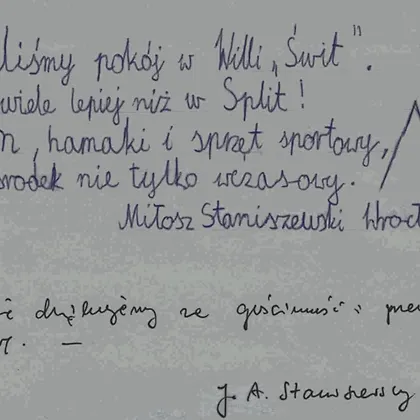 liśmy pokój w Willi „Świt”.
wiele lepiej niż w Split!
n, hamaki i sprzęt sportowy,
środek nie tylko wczasowy.
Miłosz Staniszewski Wrocł
dziękujemy za gościnność i
J. A. Staniszewscy